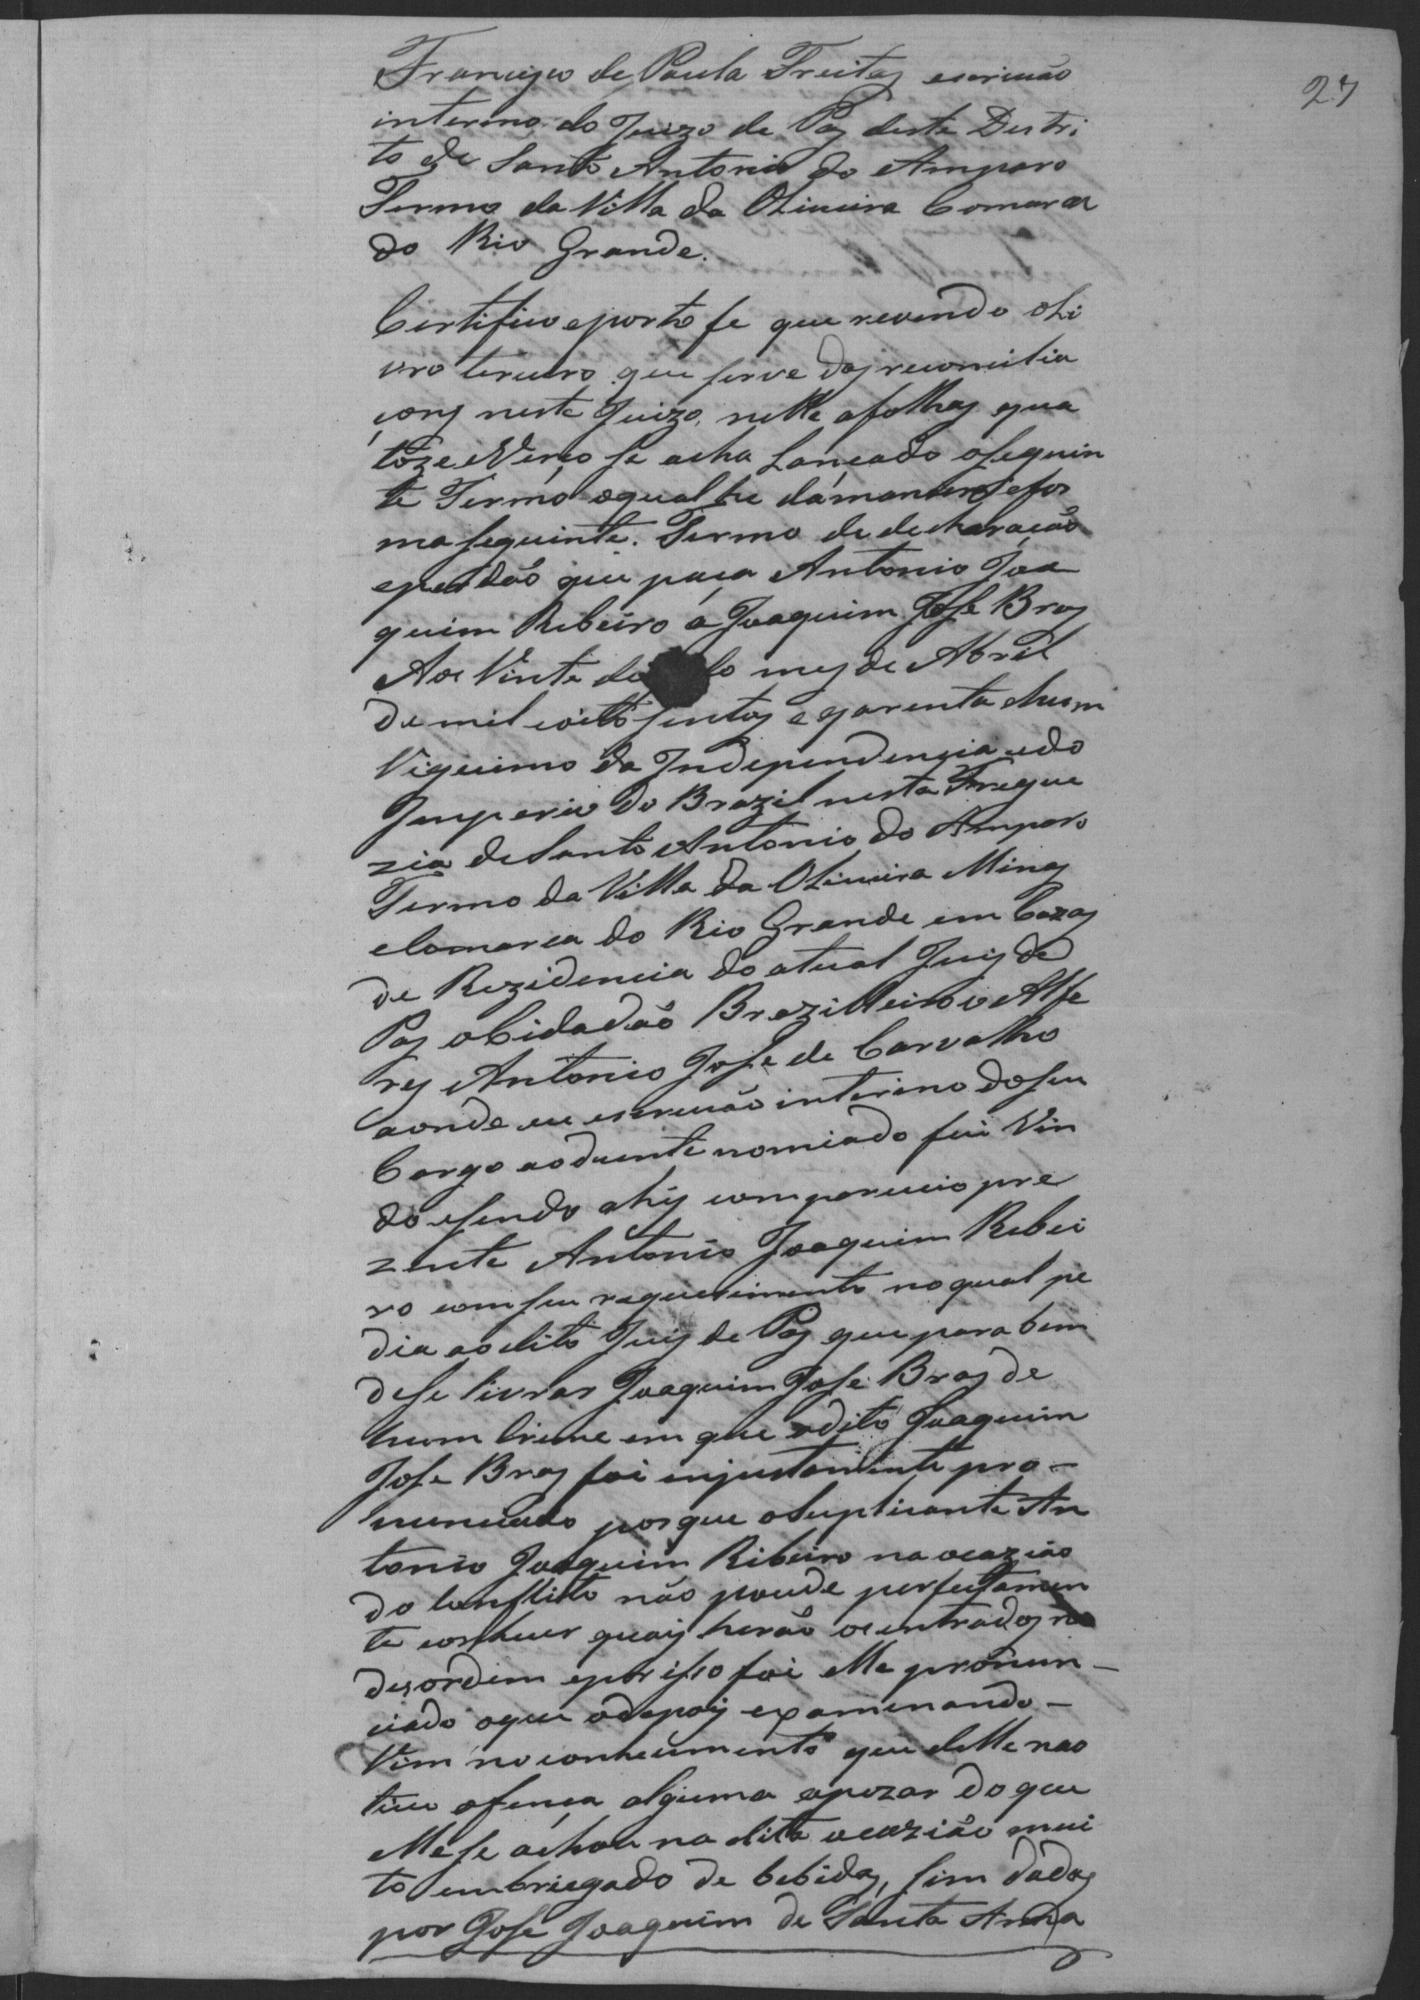 27
Francisco de Paula Freitas escrivão
interino do Juizo de Paz deste Destri
to de Santo Antonio do Amparo
Termo da Villa da Oliveira Comarca
do Rio Grande.
Certifico eporto fe que revendo oLi
vro terceiro que serve das reconcilia
çoens neste Juizo, nelle afolhas qua
toze eVerço se acha Lançado oseguin
te Termo oqual he damaneira efor
ma seguinte. Termo de declaração
eperdão que paça Antonio Joa
quim Ribeiro á Joaquim Jose Bras
Aos Vinte do mes de Abril
de mil eoito sentos e quarenta ehum
Vigecimo da Independencia edo
Imperio do Brazil nesta Fregue
zia deSanto Antonio do Amparo
Termo da Villa da Oliveira Minas
eComarca do Rio Grande em Cazas
de Rezidencia do atual Juis de
Paz oCidadão Brazilleiro o Alfe
res Antonio Jose de Carvalho
aonde eu escrivão interino doseu
Cargo aodiente nomiado fui Vin
do esendo ahi compareceio pre
zente Antonio Joaquim Ribei
ro comseu requerimento noqual pe
dia aodito Juis de Paz que para bem
dese livrar Joaquim Jose Bras de
hum Crime em que odito Joaquim
Jose Bras foi enjustamente pro-
nunciado porque oSuplicante An
tonio Joaquim Ribeiro na ocazião
do Conflito não poude perfeitamen
te conhecer quais herão os entrados na
desordem epor isso foi elle pronun-
ciado oque odepois examinando-
Vim no conhecimento que delle nao
tive ofença alguma apezar do que
elle se achou na dita ocazião mui
to embriegado de bebidas, sim dadas
por Jose Joaquim de Santa Anna